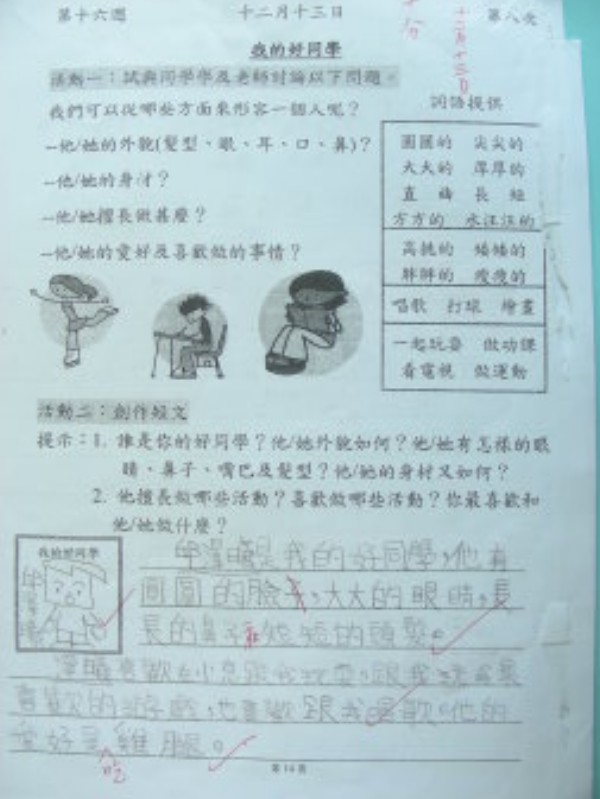 第十六週 十二月十三日 第八次
我的好同學
活動一：試與同學及老師討論以下問題。
我們可以從哪些方面來形容一個人呢？
–他/她的外貌(髮型、眼、耳、口、鼻)？
–他/她的身材？
–他/她擅長做甚麼？
–他/她的愛好及喜歡做的事情？
詞語提供
圓圓的 尖尖的
大大的 厚厚的
直 長 短
方方的 水汪汪的
高挑的 矮矮的
胖胖的 瘦瘦的
唱歌 打球 繪畫
一起玩耍 做功課
看電視 做運動
活動二：創作短文
提示：1. 誰是你的好同學？他/她外貌如何？他/她有怎樣的眼
睛、鼻子、嘴巴及髮型？他/她的身材又如何？
2. 他擅長做哪些活動？喜歡做哪些活動？你最喜歡和
他/她做什麼？
我的好同學
是我的好同學，他有
圓圓的臉，大大的眼睛，長
長的鼻子和短短的頭髮。
喜歡跟我玩耍，跟我最
喜歡的遊戲，也喜歡跟我唱歌。他的
愛好是吃雞腿。